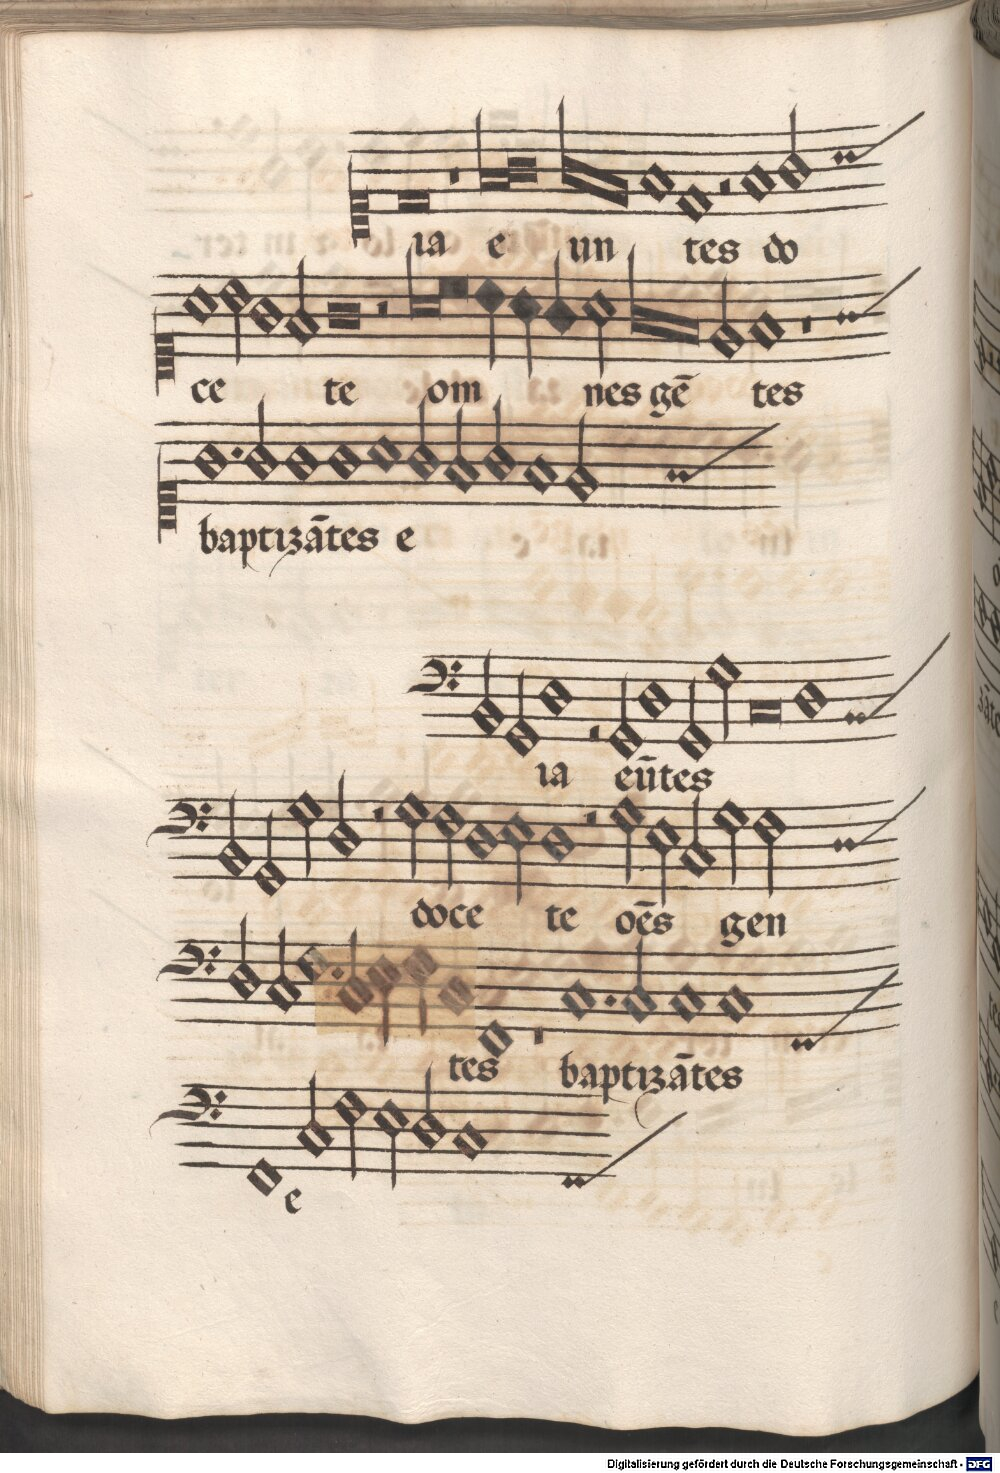 ia e un tes do
ce te om nes gē tes
baptizātes e
ia eūtes
doce te oēs gen
tes baptizātes
e
Digitalisierung gefördert durch die Deutsche Forschungsgemeinschaft - DFG